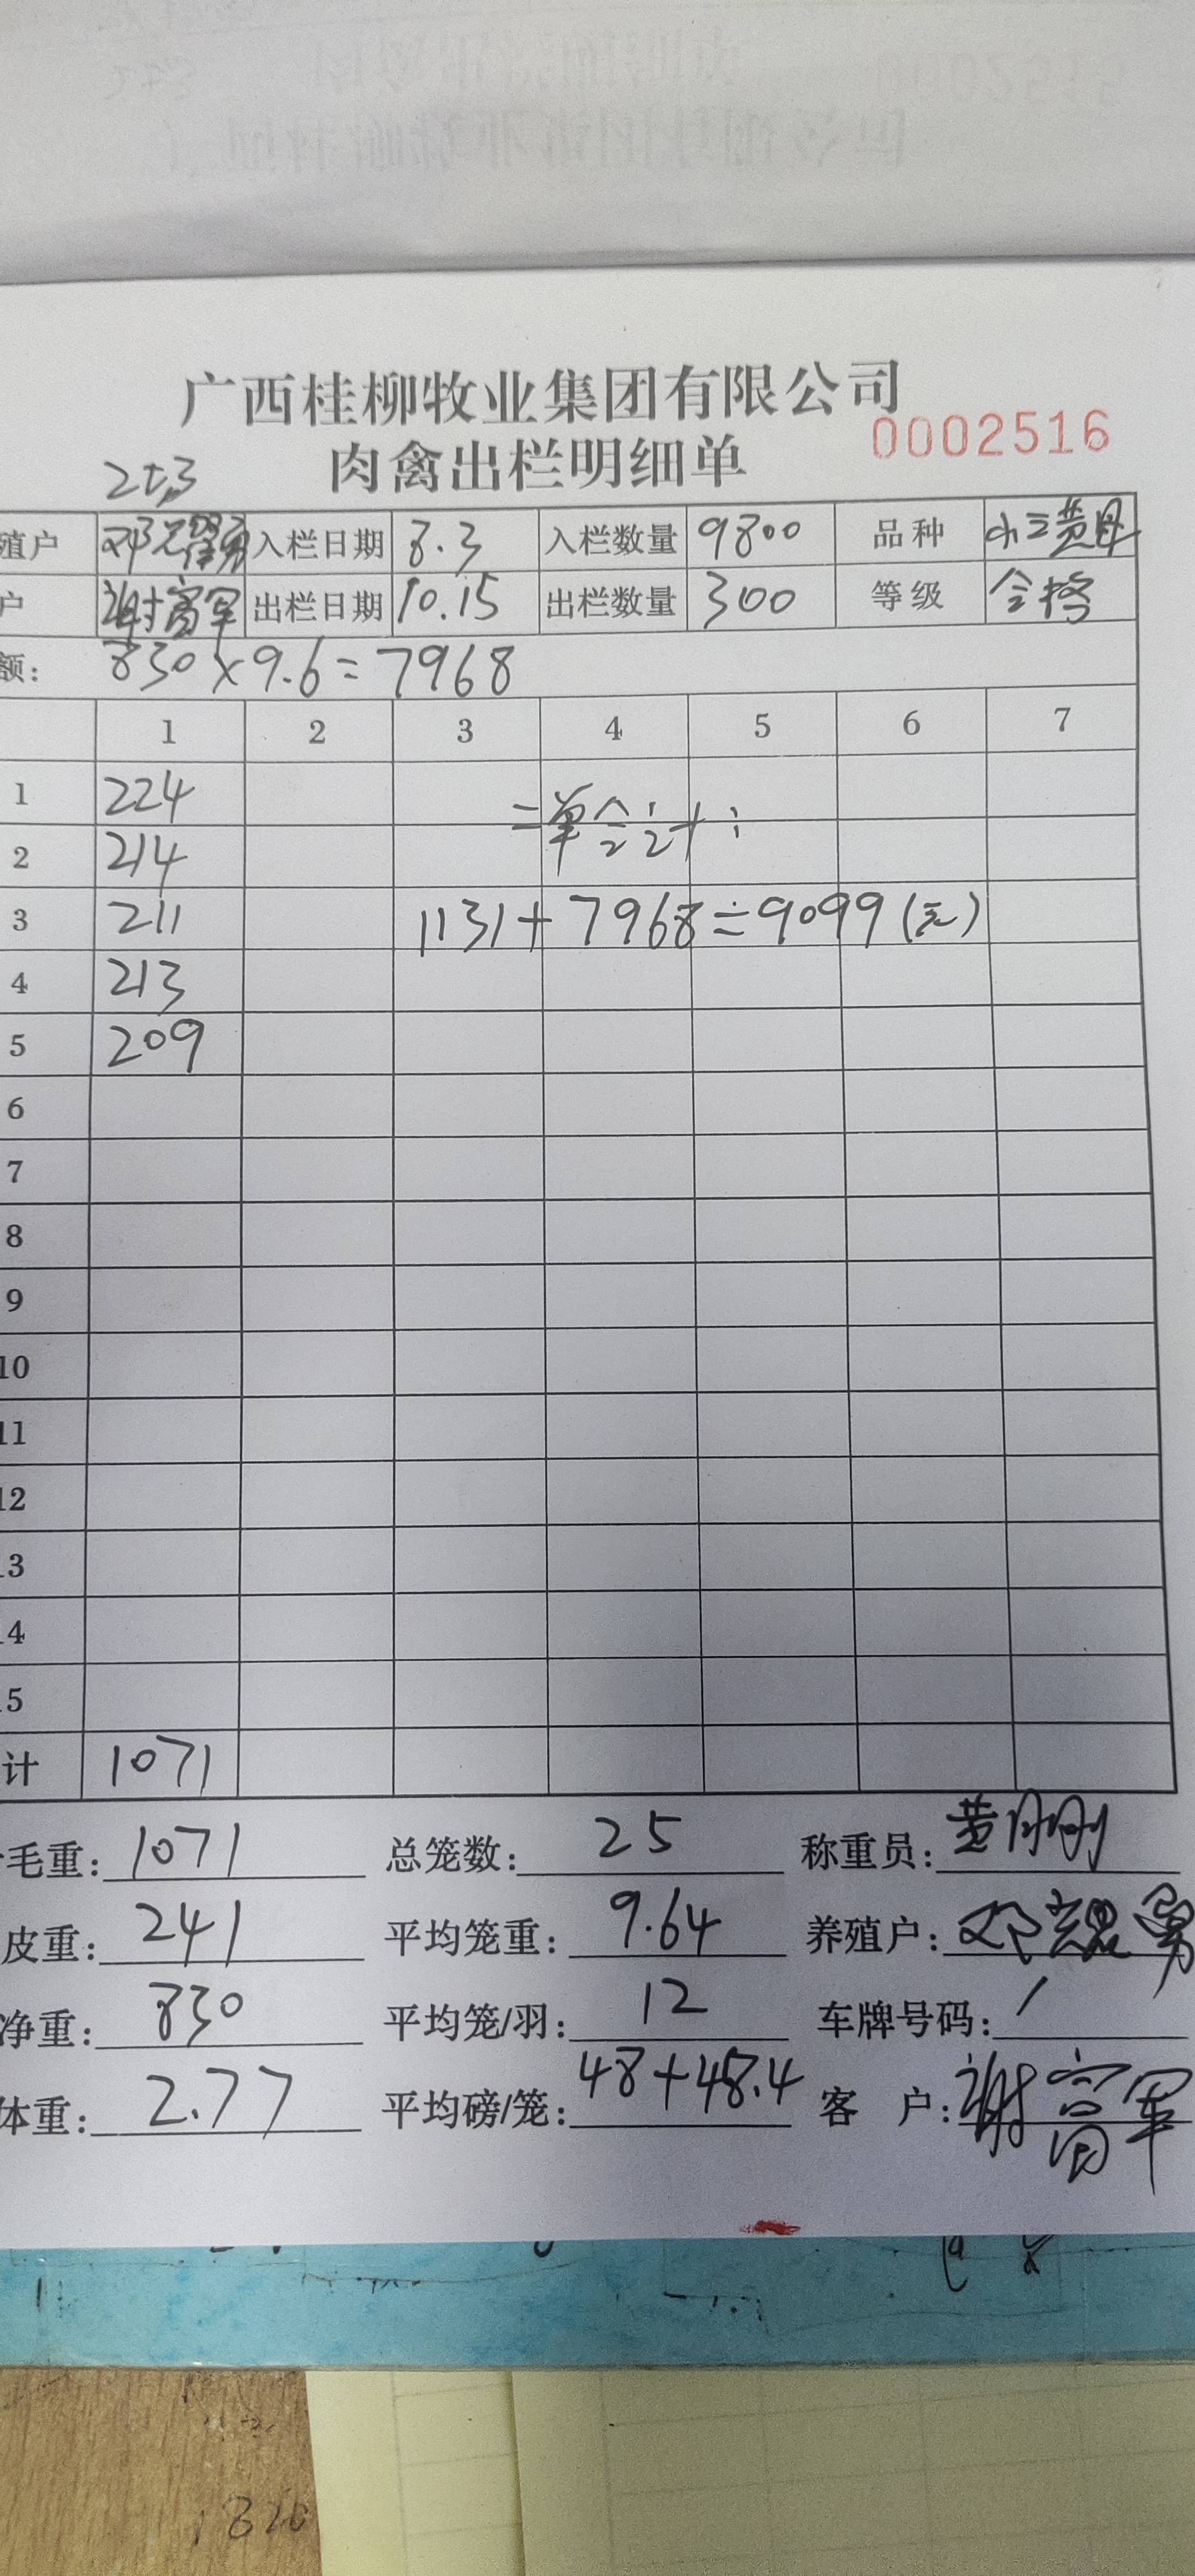 广西桂柳牧业集团有限公司
肉禽出栏明细单 0002516
殖户 入栏日期 8.3 入栏数量 9800 品种
户 谢富军 出栏日期 10.15 出栏数量 300 等级 合格
额: 830×9.6=7968
1 2 3 4 5 6 7
1 224
二单合计:
2 214
3 211 1131+7968=9099(元)
4 213
5 209
6
7
8
9
10
11
12
13
14
15
计 1071
毛重: 1071 总笼数: 25 称重员:
皮重: 241 平均笼重: 9.64 养殖户:
净重: 830 平均笼/羽: 12 车牌号码: /
体重: 2.77 平均磅/笼: 48+48.4 客 户: 谢富军